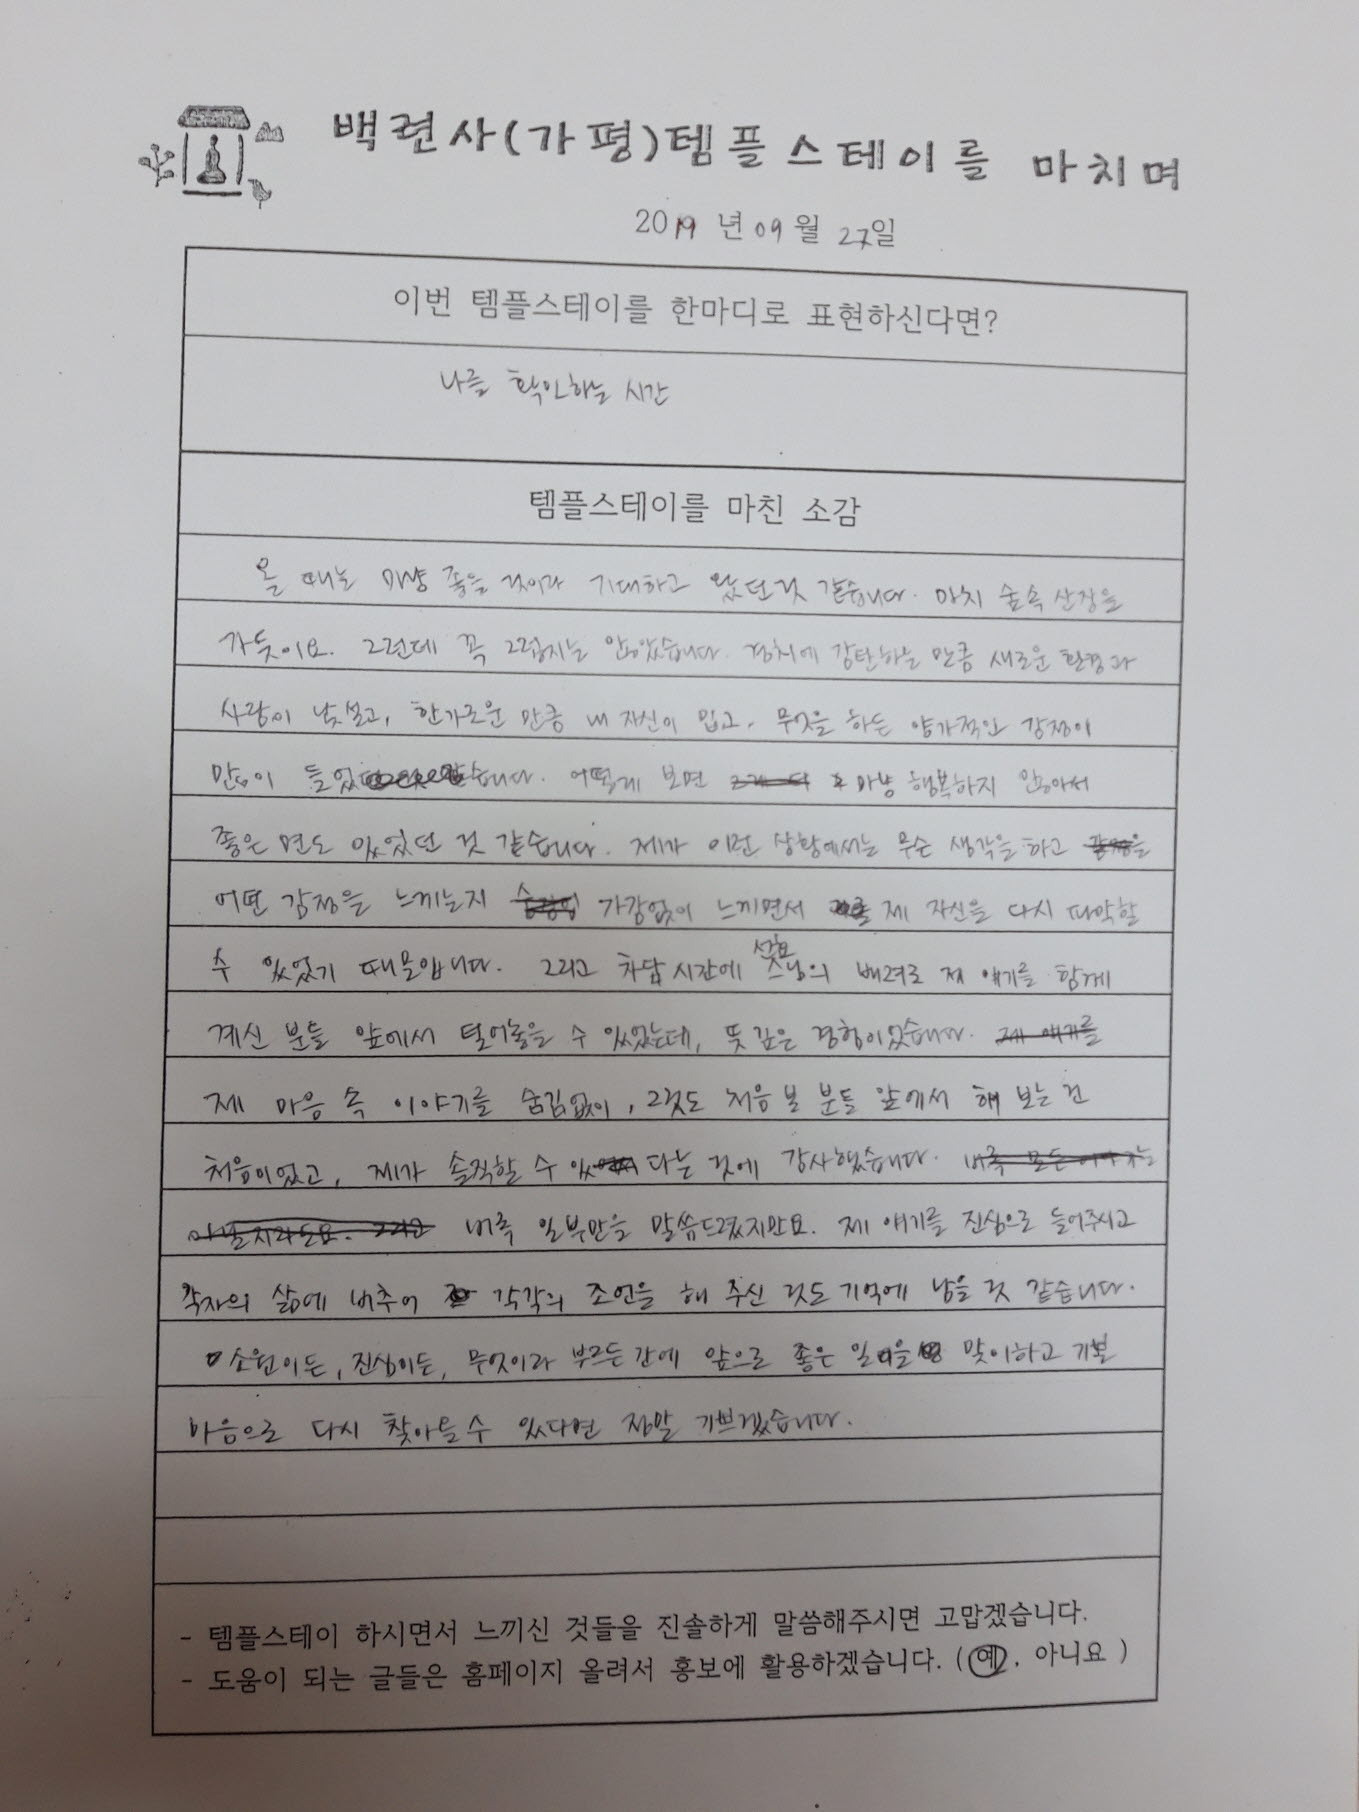 백련사(가평)템플스테이를 마치며
2019 년 09 월 27일
이번 템플스테이를 한마디로 표현하신다면?
나를 확인하는 시간
템플스테이를 마친 소감
올 때는 마냥 좋을 것이라 기대하고 왔던것 같습니다. 마치 숲속 산장을
가듯이요. 그런데 꼭 그렇지는 않았습니다. 경치에 감탄하는 만큼 새로운 환경과
사람이 낯설고, 한가로운 만큼 내 자신이 밉고, 무엇을 하든 양가적인 감정이
많이 들었습니다. 어떻게 보면 마냥 행복하지 않아서
좋은 면도 있었던 것 같습니다. 제가 이런 상황에서는 무슨 생각을 하고
어떤 감정을 느끼는지 가감없이 느끼면서 제 자신을 다시 파악할
수 있었기 때문입니다. 그리고 차담 시간에 스님의 배려로 제 얘기를 함께
계신 분들 앞에서 털어놓을 수 있었는데, 뜻 깊은 경험이었습니다. 제 얘기를
제 마음 속 이야기를 숨김없이, 그것도 처음 본 분들 앞에서 해 보는 건
처음이었고, 제가 솔직할 수 있다는 것에 감사했습니다.
비록 일부만을 말씀드렸지만요. 제 얘기를 진심으로 들어주시고
각자의 삶에 비추어 각각의 조언을 해 주신 것도 기억에 남을 것 같습니다.
소원이든, 진심이든, 무엇이라 부르든 간에 앞으로 좋은 일을 맞이하고 기쁜
마음으로 다시 찾아올 수 있다면 정말 기쁘겠습니다.
- 템플스테이 하시면서 느끼신 것들을 진솔하게 말씀해주시면 고맙겠습니다.
- 도움이 되는 글들은 홈페이지 올려서 홍보에 활용하겠습니다. (예, 아니요 )